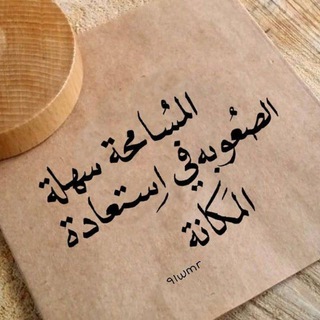 المُسامحة سهلة
الصعُوبه في اِستعادة
المَكانة
9lwmr